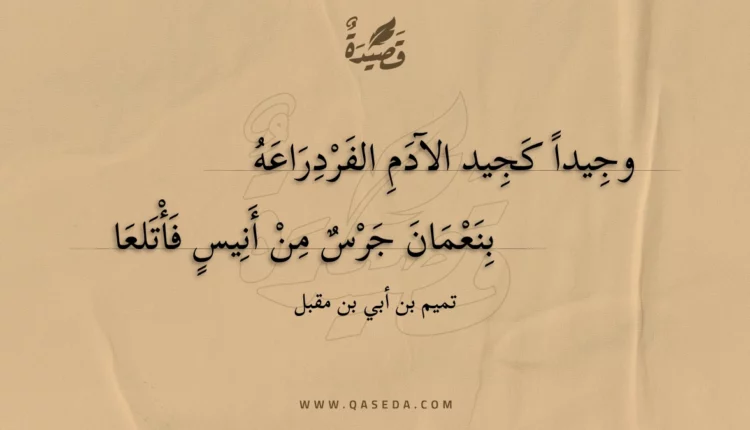 قَصِيدَةٌ
وجِيداً كَجِيد الآدَمِ الفَرْدِرَاعَهُ
بِنَعْمَانَ جَرْسٌ مِنْ أَنِيسٍ فَأَتْلَعَا
تميم بن أبي بن مقبل
WWW.QASEDA.COM